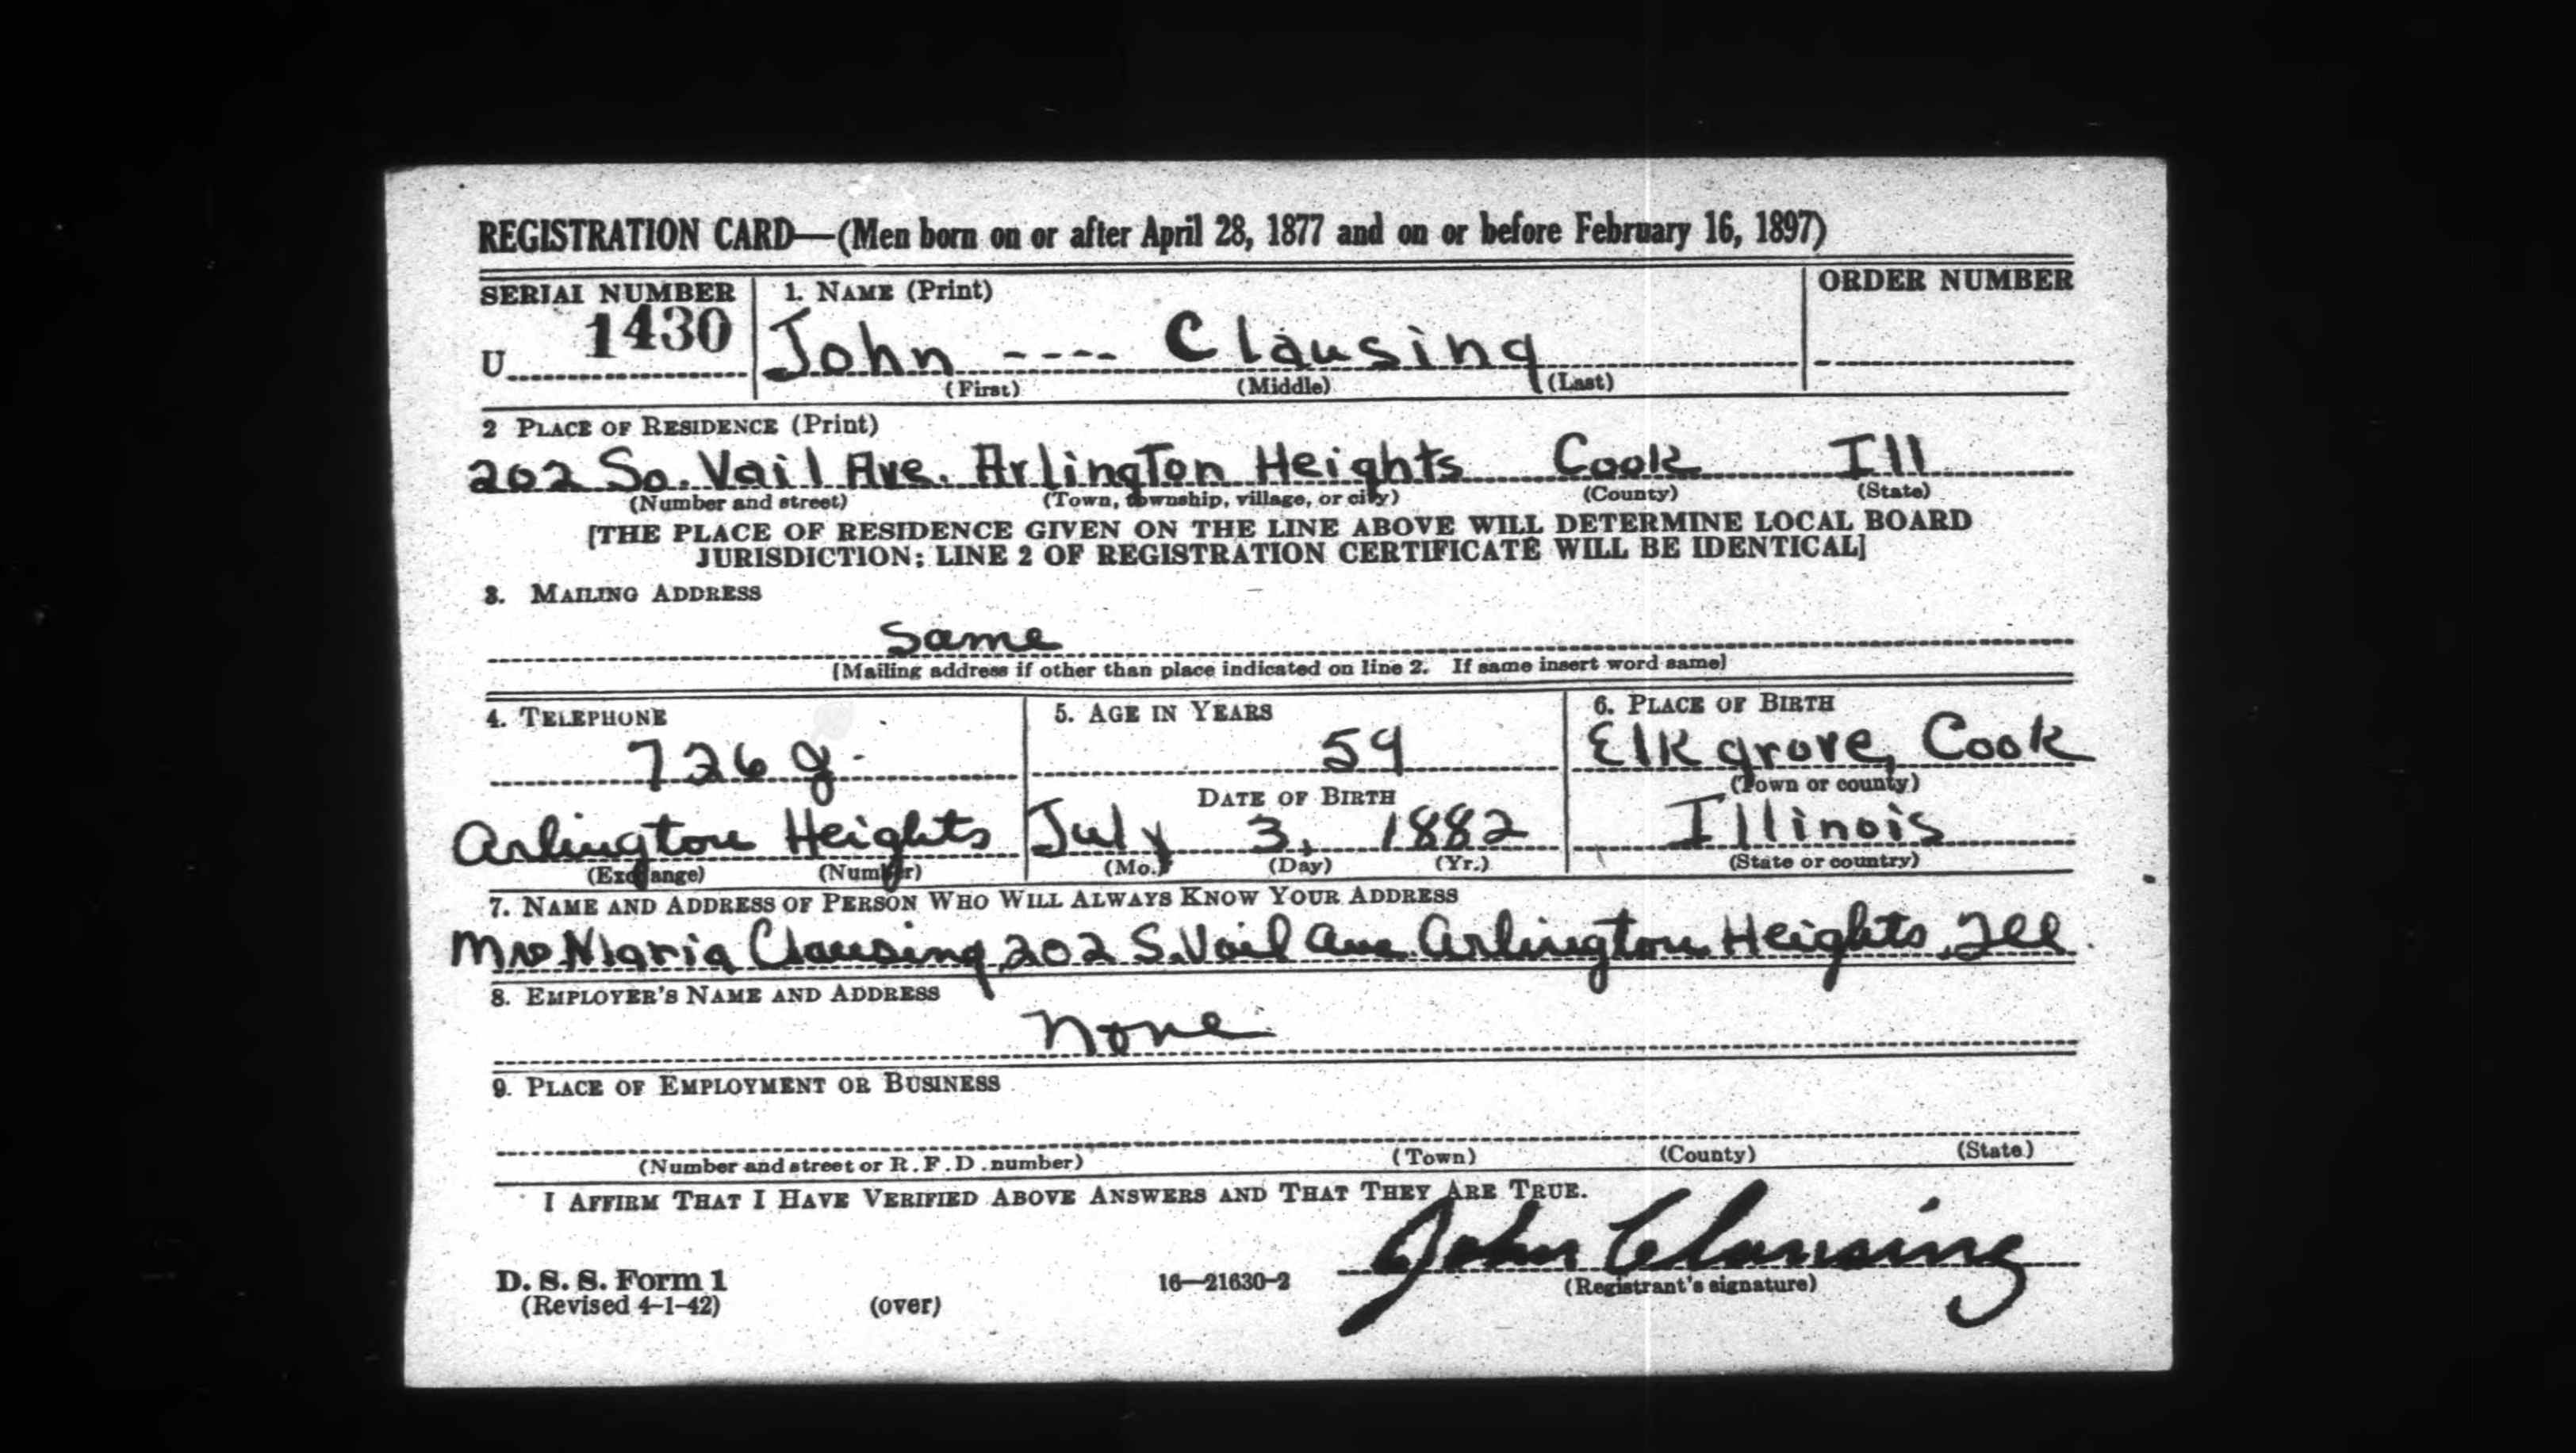 REGISTRATION CARD—(Men born on or after April 28, 1877 and on or before February 16, 1897)
SERIAL NUMBER 1. NAME (Print) ORDER NUMBER
U 1430 John ---- Clausing
(First) (Middle) (Last)
2 PLACE OF RESIDENCE (Print)
202 So. Vail Ave. Arlington Heights Cook Ill
(Number and street) (Town, township, village, or city) (County) (State)
[THE PLACE OF RESIDENCE GIVEN ON THE LINE ABOVE WILL DETERMINE LOCAL BOARD
JURISDICTION; LINE 2 OF REGISTRATION CERTIFICATE WILL BE IDENTICAL]
3. MAILING ADDRESS
Same
[Mailing address if other than place indicated on line 2. If same insert word same]
4. TELEPHONE 5. AGE IN YEARS 6. PLACE OF BIRTH
726 59 Elk grove, Cook
DATE OF BIRTH (Town or county)
Arlington Heights July 3, 1882 Illinois
(Exchange) (Number) (Mo.) (Day) (Yr.) (State or country)
7. NAME AND ADDRESS OF PERSON WHO WILL ALWAYS KNOW YOUR ADDRESS
Mrs Maria Clausing 202 S. Vail Ave Arlington Heights, Ill.
8. EMPLOYER'S NAME AND ADDRESS
None
9. PLACE OF EMPLOYMENT OR BUSINESS
(Number and street or R.F.D. number) (Town) (County) (State)
I AFFIRM THAT I HAVE VERIFIED ABOVE ANSWERS AND THAT THEY ARE TRUE.
John Clausing
D. S. S. Form 1 16—21630-2 (Registrant's signature)
(Revised 4-1-42) (over)